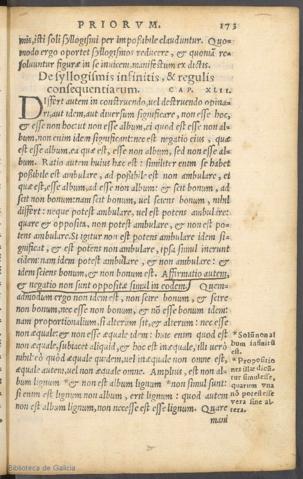 PRIORVM. 173
mis, isti soli syllogismi per impossibile clauduntur. Quo-
modo ergo oportet syllogismos reducere, & quoniã re-
soluuntur figuræ in se inuicem, manifestum ex dictis.
De syllogismis infinitis, & regulis
consequentiarum. CAP. XLII.
Differt autem in construendo, uel destruendo opina-
ri, aut idem, aut diuersum significare, non esse hoc,
& esse non hoc: ut non esse album, ei quod est esse non al-
bum. non enim idem significant: nec est negatio eius, quæ
est esse album, ea quæ est, esse non album, sed non esse al-
bum. Ratio autem huius hæc est: similiter enim se habet
possibile est ambulare, ad possibile est non ambulare, et
quæ est, esse album, ad esse non album: & scit bonum, ad
scit non bonum: nam scit bonum, uel sciens bonum, nihil
differt: neque potest ambulare, uel est potens ambulare:
quare & opposita, non potest ambulare, & non est po-
tens ambulare. Si igitur non est potens ambulare idem si-
gnificat, & est potens non ambulare, ipsa simul inerunt
eidem: nam idem potest ambulare, & non ambulare: &
idem sciens bonum, & non bonum est. Affirmatio autem,
& negatio non sunt oppositæ simul in eodem. Quem-
admodum ergo non idem est, non scire bonum, & scire
non bonum, nec esse non bonum, & nõ esse bonum idem:
nam proportionalium, si alterum sit, & alterum: nec esse
non æquale: & non esse æquale idem: huic enim quod est
non æquale, subiacet aliquid, & hoc est inæquale, illi uerò
nihil: eò quòd æquale quidem, uel inæquale non omne est,
æquale autem, uel non æquale omne. Amplius, est non al-
bum lignum * & non est album lignum * non simul sunt:
si enim est lignum non album, erit lignum: quod autem
non est album lignum, non necesse est esse lignum. Quare
mani
* Solũ non al
bum infinitũ
est.
* Propositio
nes illæ dicũ-
tur simul esse,
quarum vna
nõ potest esse
vera sine al-
tera.
Biblioteca de Galicia